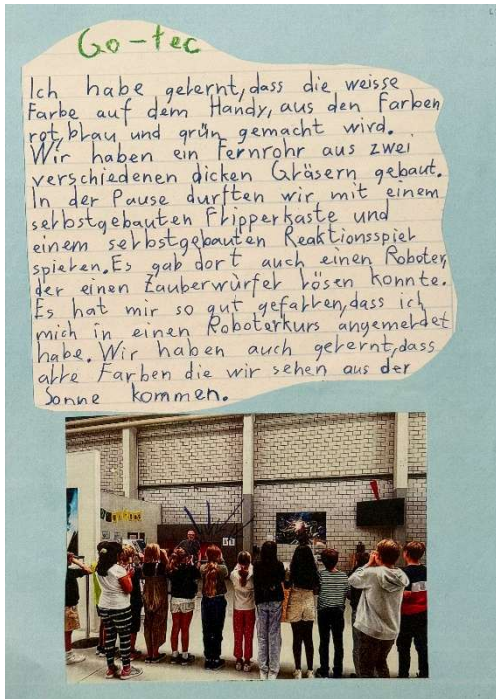 Go-tec
Ich habe gelernt, dass die weisse
Farbe auf dem Handy, aus den Farben
rot, blau und grün gemacht wird.
Wir haben ein Fernrohr aus zwei
verschiedenen dicken Gläsern gebaut.
In der Pause durften wir mit einem
selbstgebauten Flipperkaste und
einem selbstgebauten Reaktionsspiel
spielen. Es gab dort auch einen Roboter,
der einen Zauberwürfel lösen konnte.
Es hat mir so gut gefallen, dass ich
mich in einen Roboterkurs angemeldet
habe. Wir haben auch gelernt, dass
alle Farben die wir sehen aus der
Sonne kommen.